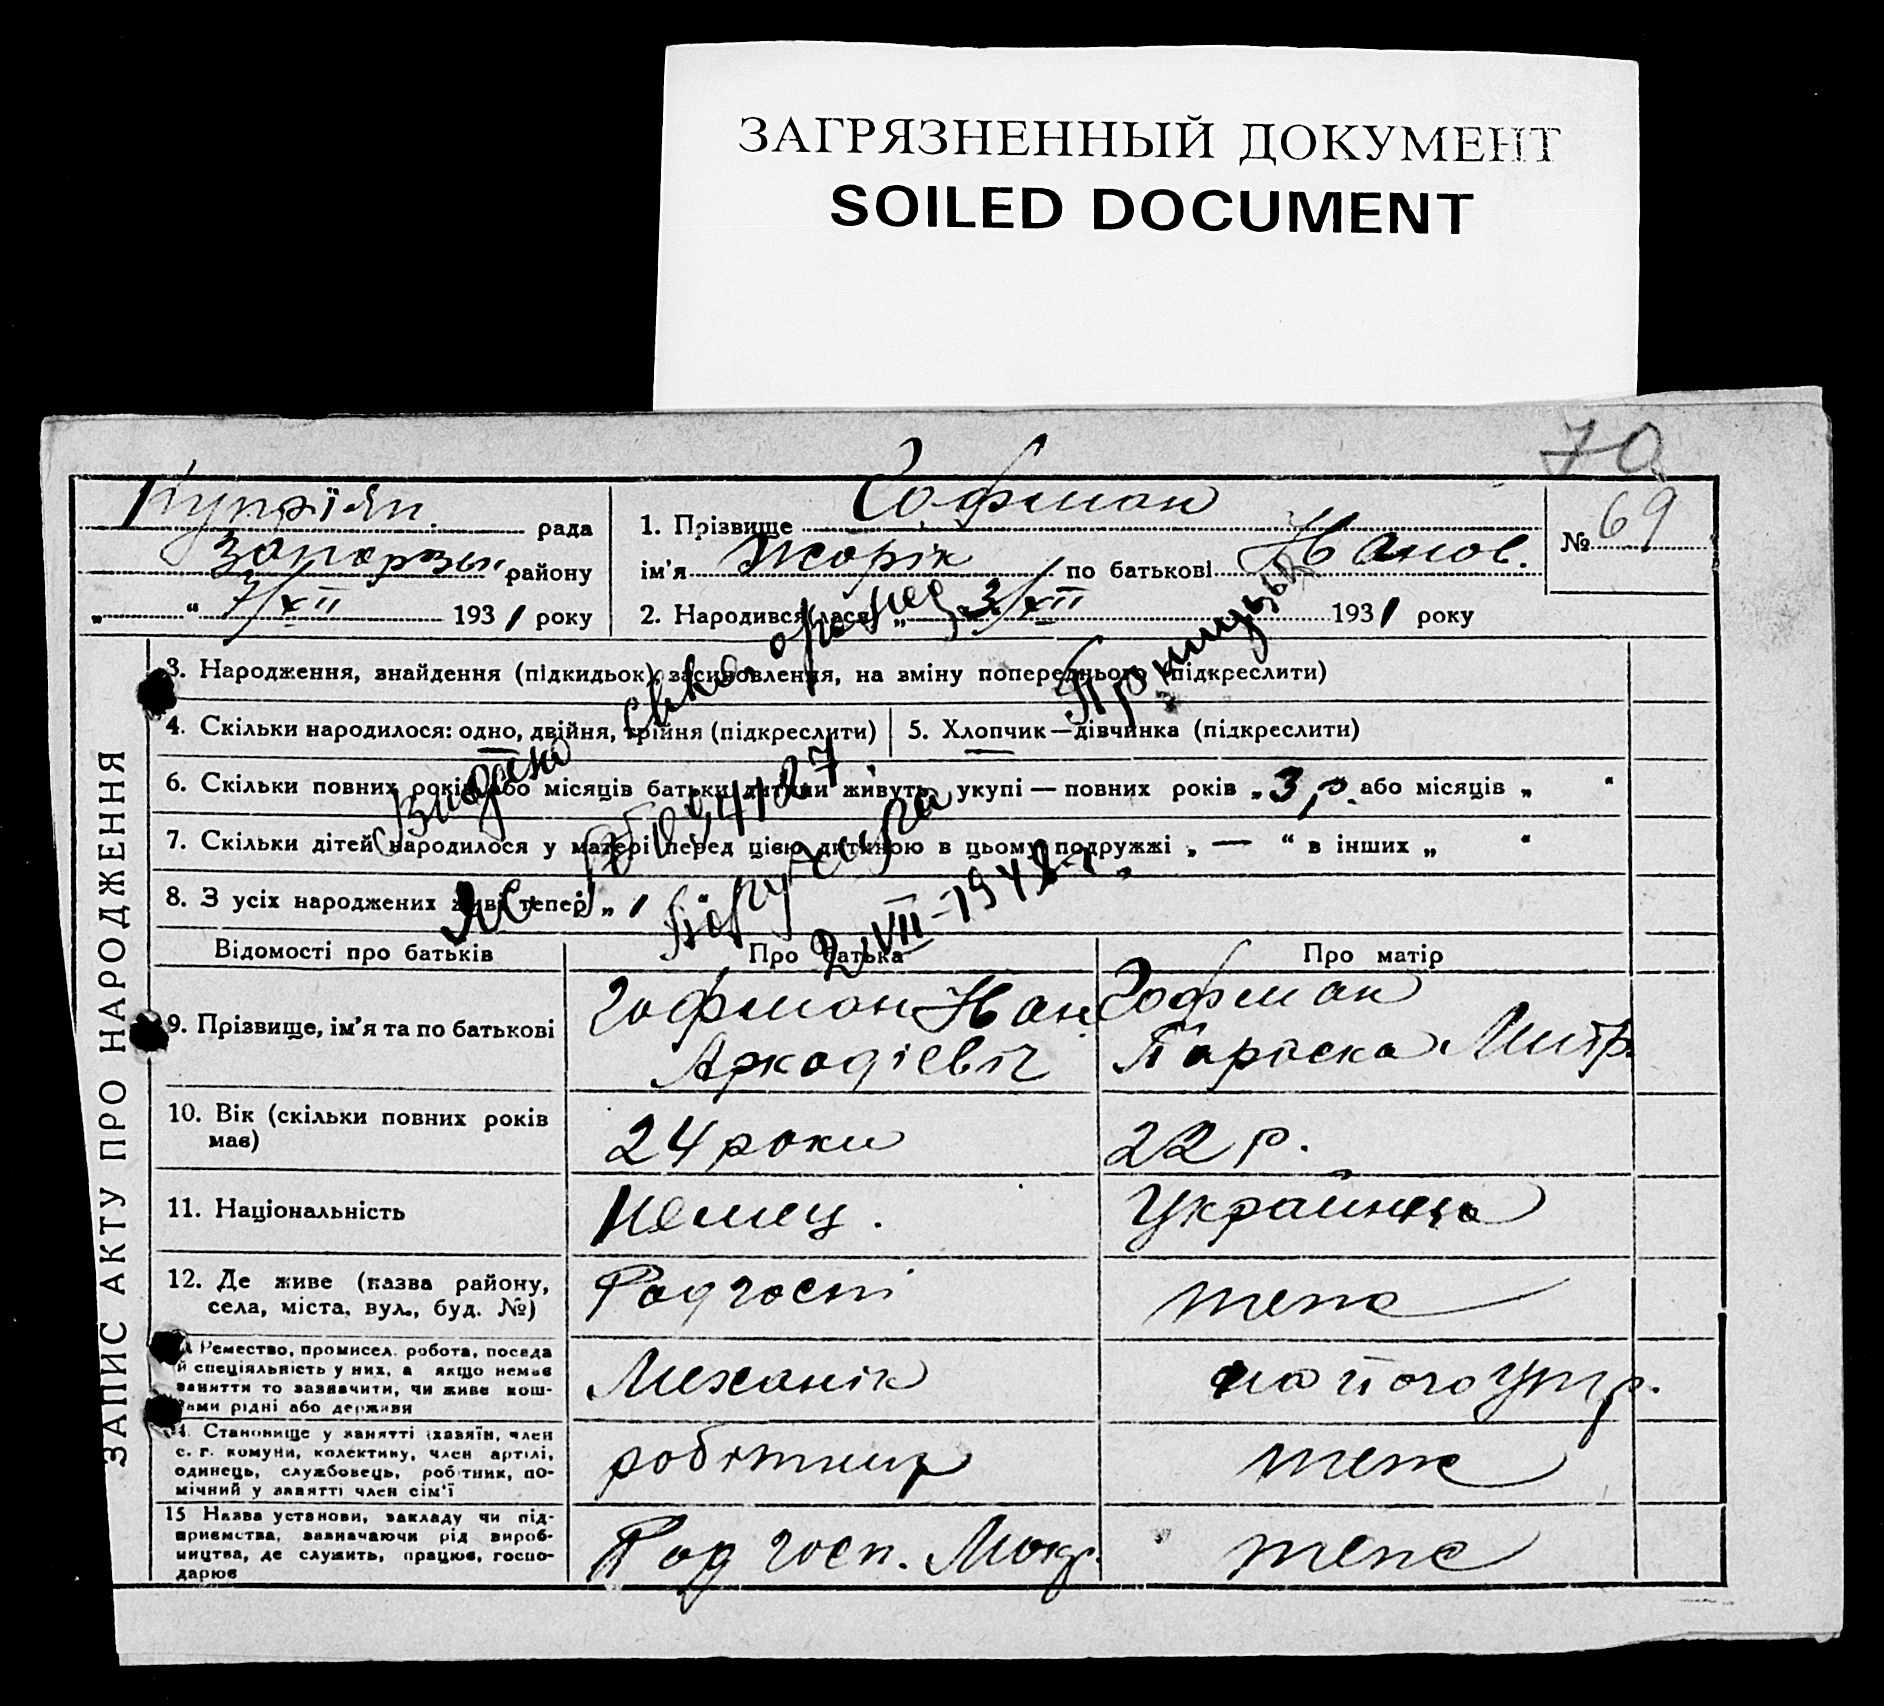 ЗАГРЯЗНЕННЫЙ ДОКУМЕНТ
SOILED DOCUMENT
70
Купріян. рада
Запорізьк. району
„ “ 7/XII 1931 року
1. Прізвище Гофман
ім'я Жорік по батькові Іванов.
2. Народився(лася) „ 3/XII 1931 року
№ 69
ЗАПИС АКТУ ПРО НАРОДЖЕННЯ
3. Народження, знайдення (підкидьок), засиновлення, на зміну попереднього (підкреслити)
4. Скільки народилося: одно, двійня, трійня (підкреслити)
5. Хлопчик—дівчинка (підкреслити)
6. Скільки повних років або місяців батьки дитини живуть укупі — повних років „ 3 р. або місяців „ “
7. Скільки дітей народилося у матері перед цією дитиною в цьому подружжі „ — “ в інших „ “
8. З усіх народжених живі тепер „ 1
Видано
2/VII-1948 г.
Відомості про батьків
Про батька
Про матір
9. Прізвище, ім'я та по батькові
Гофман Іван
Аркадієвіч
Гофман
Параска Митр.
10. Вік (скільки повних років має)
24 роки
22 р.
11. Національність
Немец.
Українка
12. Де живе (назва району, села, міста, вул., буд. №)
Радгосп
теж
13. Ремество, промисел, робота, посада й спеціяльність у них, а якщо немає заняття то зазначити, чи живе коштами рідні або держави
Механік
на його утр.
14. Становище у занятті (хазяїн, член с. г. комуни, колективу, член артілі, одинець, службовець, робітник, помічний у занятті член сім'ї
робітник
теж
15 Назва установи, закладу чи підприємства, зазначаючи рід виробництва, де служить, працює, господарює
Радгосп. Мокр.
теж